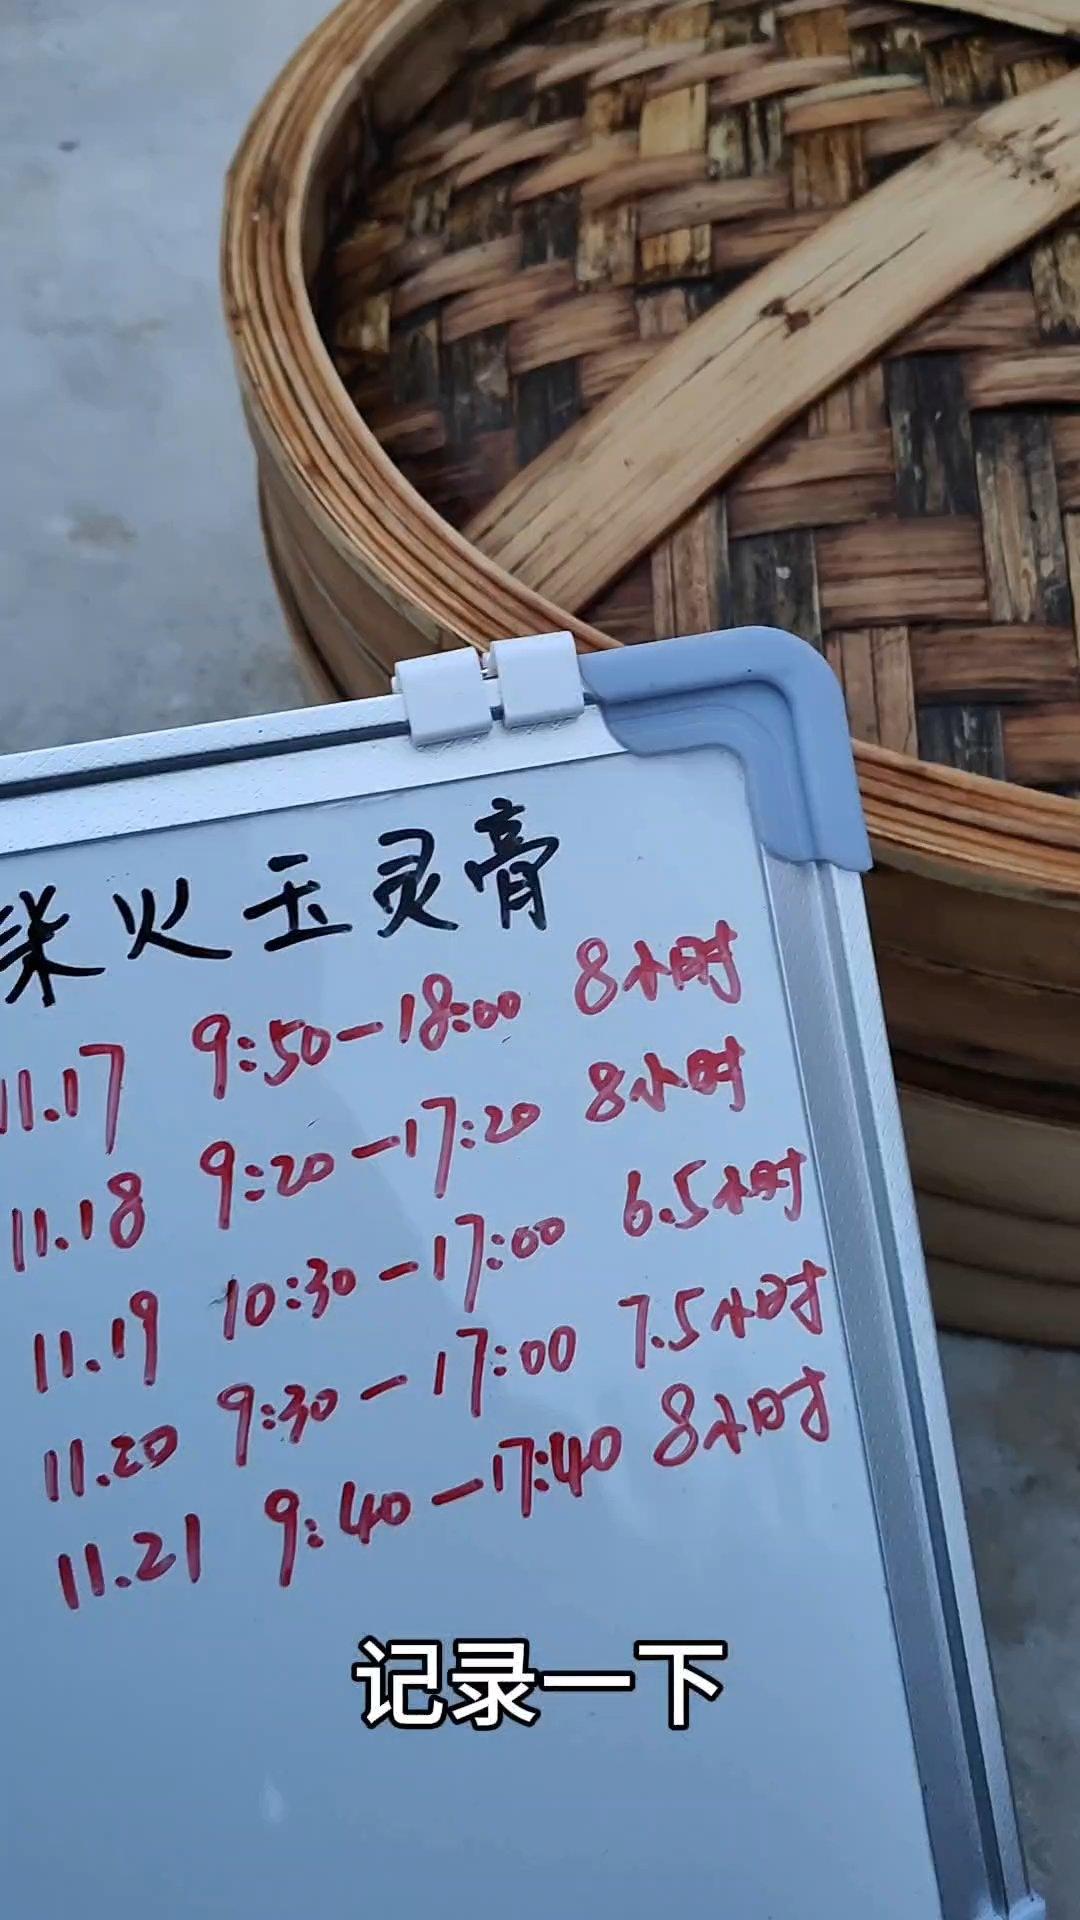 柴火玉灵膏
11.17 9:50-18:00 8小时
11.18 9:20-17:20 8小时
11.19 10:30-17:00 6.5小时
11.20 9:30-17:00 7.5小时
11.21 9:40-17:40 8小时
记录一下